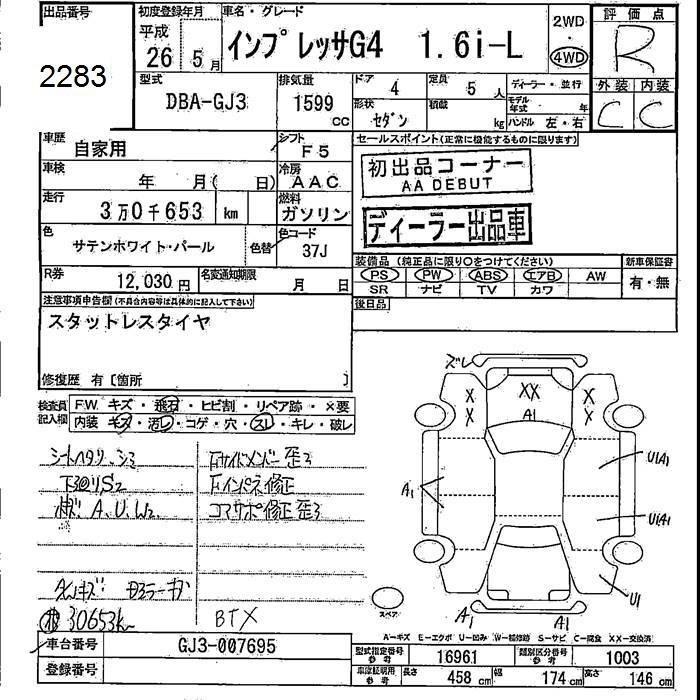 出品番号
2283
初度登録年月
平成
26 5月
車名・グレード
インプレッサG4 1.6i-L
2WD
4WD
評価点
R
外装 内装
C C
型式
DBA-GJ3
排気量
1599
cc
ドア
4
定員
5 人
形状
セダン
積載
kg
ディーラー・並行
モデル年式 年
ハンドル 左・右
車歴
自家用
シフト
F5
車検
年 月( 日)
冷房
AAC
走行
3万0千653 km
燃料
ガソリン
色
サテンホワイト・パール
色替
色コード
37J
R券
12,030円
名変通知期限
月 日
セールスポイント(正常に機能するものに限ります)
初出品コーナー
AA DEBUT
ディーラー出品車
装備品(純正品に限り○をつけてください)
PS PW ABS エアB AW
SR ナビ TV カワ
新車保証書
有・無
後日品
注意事項申告欄(不具合内容等は具体的に記入して下さい)
スタットレスタイヤ
修復歴 有〔箇所 〕
検査員記入欄
F.W. キズ・飛石・ヒビ割・リペア跡・×要
内装 キズ・汚レ・コゲ・穴・スレ・キレ・破レ
シートヘタリ、シミ
下回りS2
ボデ A、U、W2
30653k
右サイドメンバー歪ミ
右インパネ修正
コアサポ修正歪ミ
BTX
ズレ
XX
A1
X
X
X
X
U1(A1)
A1
U1(A1)
U1
スペア
A1
A1
A-キズ E-エクボ U-凹み W-補修跡 S-サビ C-腐食 XX-交換済
車台番号
GJ3-007695
登録番号
型式指定番号
参考
16961
類別区分番号
参考
1003
車庫証明用
参考
長さ 458 cm 幅 174 cm 高さ 146 cm